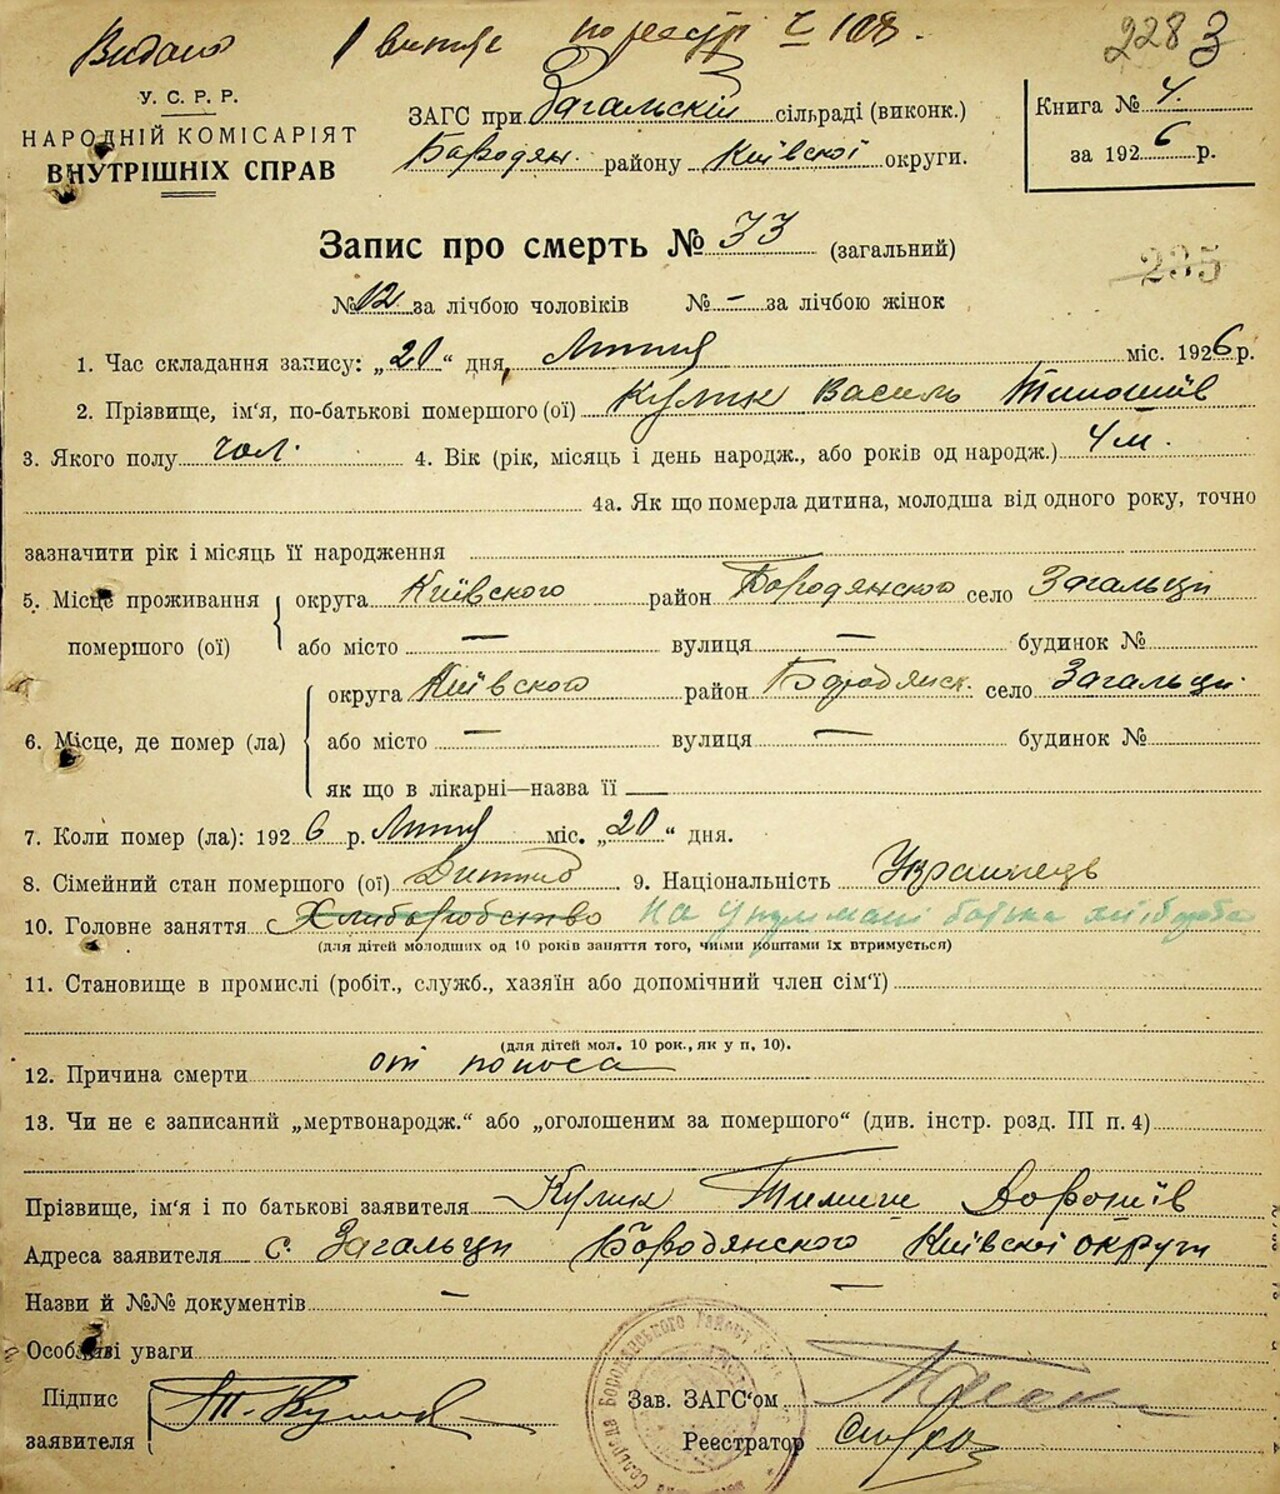 Видано 1 випис по реєстр № 108.
228 3
У. С. Р. Р.
НАРОДНІЙ КОМІСАРІЯТ
ВНУТРІШНІХ СПРАВ
ЗАГС при Загальскій сільраді (виконк.)
Бородян. району Київскої округи.
Книга № 4.
за 1926 р.
Запис про смерть № 33 (загальний)
235
№ 12 за лічбою чоловіків № – за лічбою жінок
1. Час складання запису: „20“ дня, Липня міс. 1926 р.
2. Прізвище, ім'я, по-батькові помершого (ої) Кулик Василь Тимошіїв
3. Якого полу чол. 4. Вік (рік, місяць і день народж., або років од народж.) 4 м.
4а. Як що померла дитина, молодша від одного року, точно
зазначити рік і місяць її народження
5. Місце проживання помершого (ої) округа Київского район Бородянского село Загальци
або місто — вулиця — будинок №
6. Місце, де помер (ла) округа Київского район Бородянск. село Загальци
або місто — вулиця — будинок №
як що в лікарні—назва її —
7. Коли помер (ла): 1926 р. Липня міс. „20“ дня.
8. Сімейний стан помершого (ої) Дитина 9. Національність Українець
10. Головне заняття Хлиборобство на утриманні батька хлібороба
(для дітей молодших од 10 років заняття того, чиїми коштами їх втримується)
11. Становище в промислі (робіт., служб., хазяїн або допомічний член сім'ї)
(для дітей мол. 10 рок., як у п. 10).
12. Причина смерти от поноса
13. Чи не є записаний „мертвонародж.“ або „оголошеним за помершого“ (див. інстр. розд. III п. 4)
Прізвище, ім'я і по батькові заявителя Кулик Тимиш Дорошіїв
Адреса заявителя с. Загальци Бородянского Київскої округи
Назви й №№ документів – —
Особливі уваги
Підпис заявителя Т. Кулик
Зав. ЗАГС'ом
Реєстратор